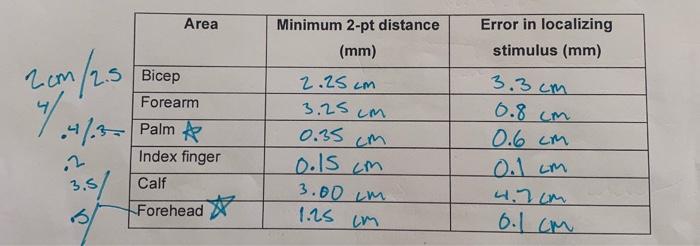 Area Minimum 2-pt distance (mm) Error in localizing stimulus (mm)
2cm/2.5 Bicep 2.25 cm 3.3 cm
4/ Forearm 3.25 cm 0.8 cm
.4/.3 Palm ☆ 0.35 cm 0.6 cm
.2 Index finger 0.15 cm 0.1 cm
3.5/ Calf 3.00 cm 4.7 cm
Forehead ☆ 1.25 cm 0.1 cm